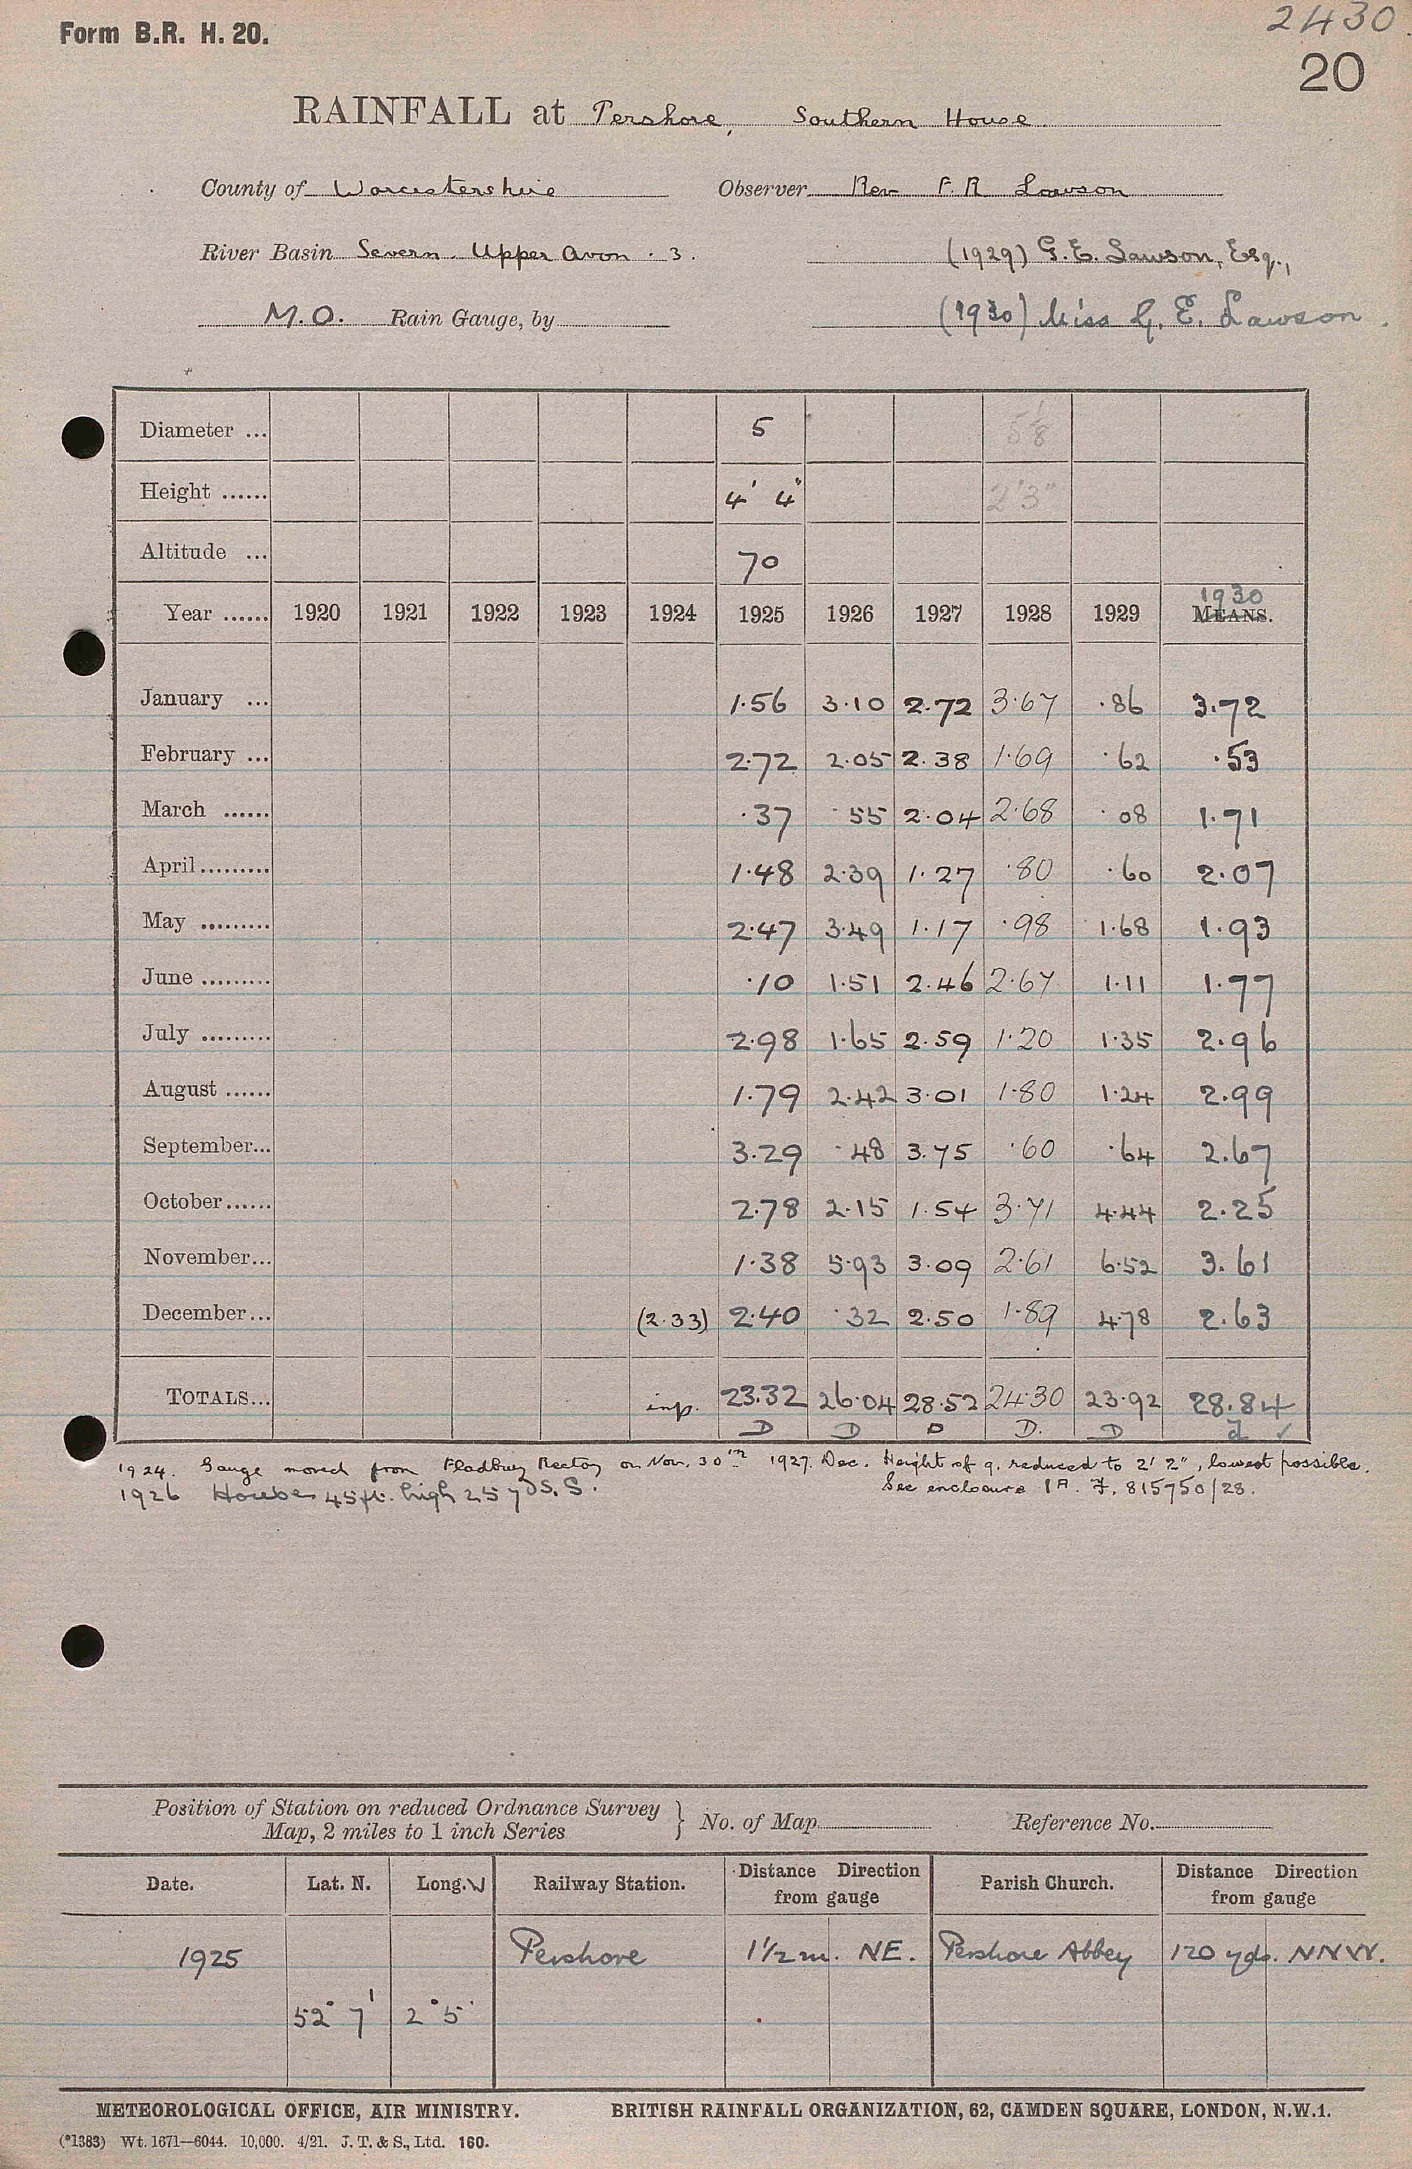 Form B.R. H. 20.
2430
20
RAINFALL at Pershore, Southern House
County of Worcestershire Observer Rev F. R Lawson
River Basin Severn. Upper Avon . 3. (1929) G. E. Lawson, Esq.,
M.O. Rain Gauge, by (1930) Miss G. E. Lawson.
Diameter ... 5 5 1/8
Height ...... 4' 4" 2'3"
Altitude ... 70
1930
Year ...... 1920 1921 1922 1923 1924 1925 1926 1927 1928 1929 MEANS.
January ... 1.56 3.10 2.72 3.67 .86 3.72
February ... 2.72 2.05 2.38 1.69 .62 .53
March ...... .37 .55 2.04 2.68 .08 1.71
April ......... 1.48 2.39 1.27 .80 .60 2.07
May ......... 2.47 3.49 1.17 .98 1.68 1.93
June ......... .10 1.51 2.46 2.67 1.11 1.77
July ......... 2.98 1.65 2.59 1.20 1.35 2.96
August ...... 1.79 2.42 3.01 1.80 1.24 2.99
September... 3.29 .48 3.75 .60 .64 2.67
October ...... 2.78 2.15 1.54 3.71 4.44 2.25
November... 1.38 5.93 3.09 2.61 6.52 3.61
December... (2.33) 2.40 .32 2.50 1.89 4.78 2.63
TOTALS... inp. 23.32 26.04 28.52 24.30 23.92 28.84
D D D D. D d ✓
1924. Gauge moved from Fladbury Rectory on Nov. 30th 1927. Dec. Height of g. reduced to 2' 2", lowest possible.
1926 Houses 45 ft. high 25 yds. S. See enclosure 1A. F. 815750/28.
Position of Station on reduced Ordnance Survey
Map, 2 miles to 1 inch Series } No. of Map Reference No.
Date. Lat. N. Long. W Railway Station. Distance Direction from gauge Parish Church. Distance Direction from gauge
1925 Pershore 1 1/2 m. NE. Pershore Abbey 120 yds. NNW.
52° 7' 2° 5'
METEOROLOGICAL OFFICE, AIR MINISTRY. BRITISH RAINFALL ORGANIZATION, 62, CAMDEN SQUARE, LONDON, N.W.1.
(*1383) Wt. 1671—6044. 10,000. 4/21. J. T. & S., Ltd. 160.